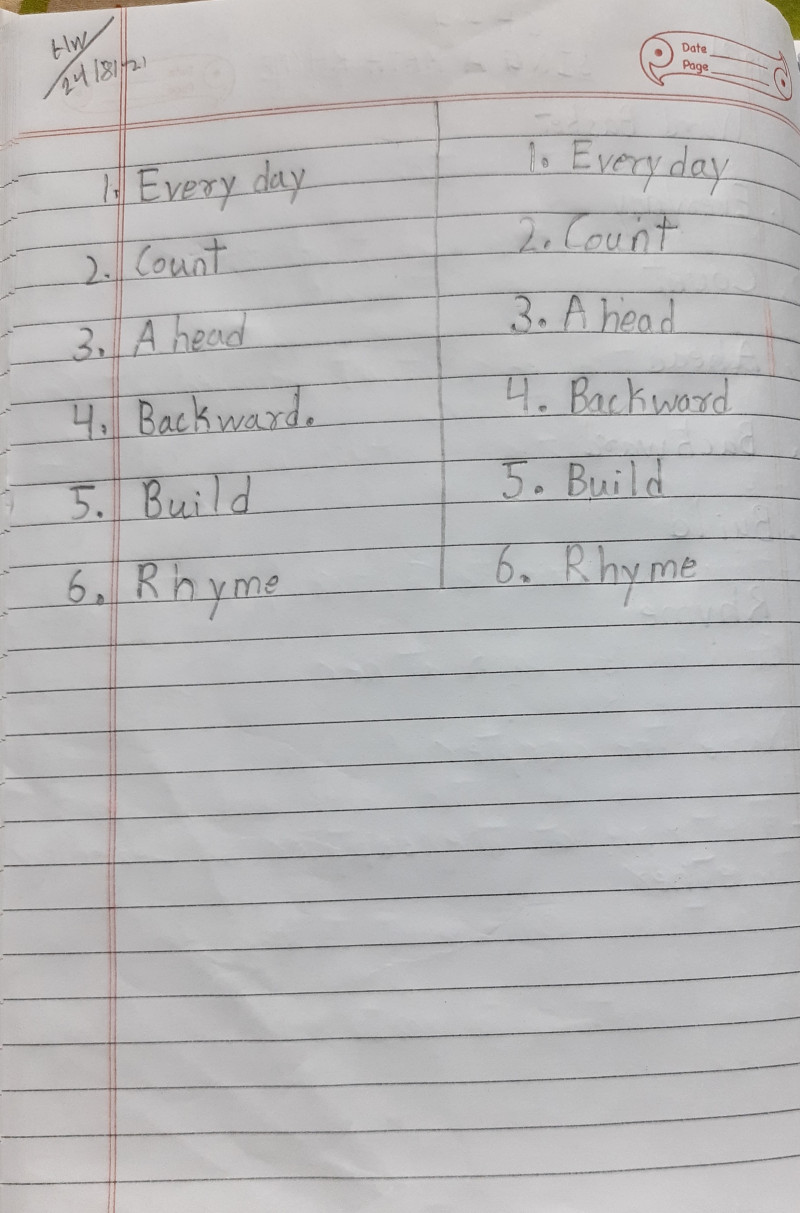 HW
24/8/21
Date
Page
1. Every day 1. Every day
2. Count 2. Count
3. A head 3. A head
4. Backward. 4. Backword
5. Build 5. Build
6. Rhyme 6. Rhyme